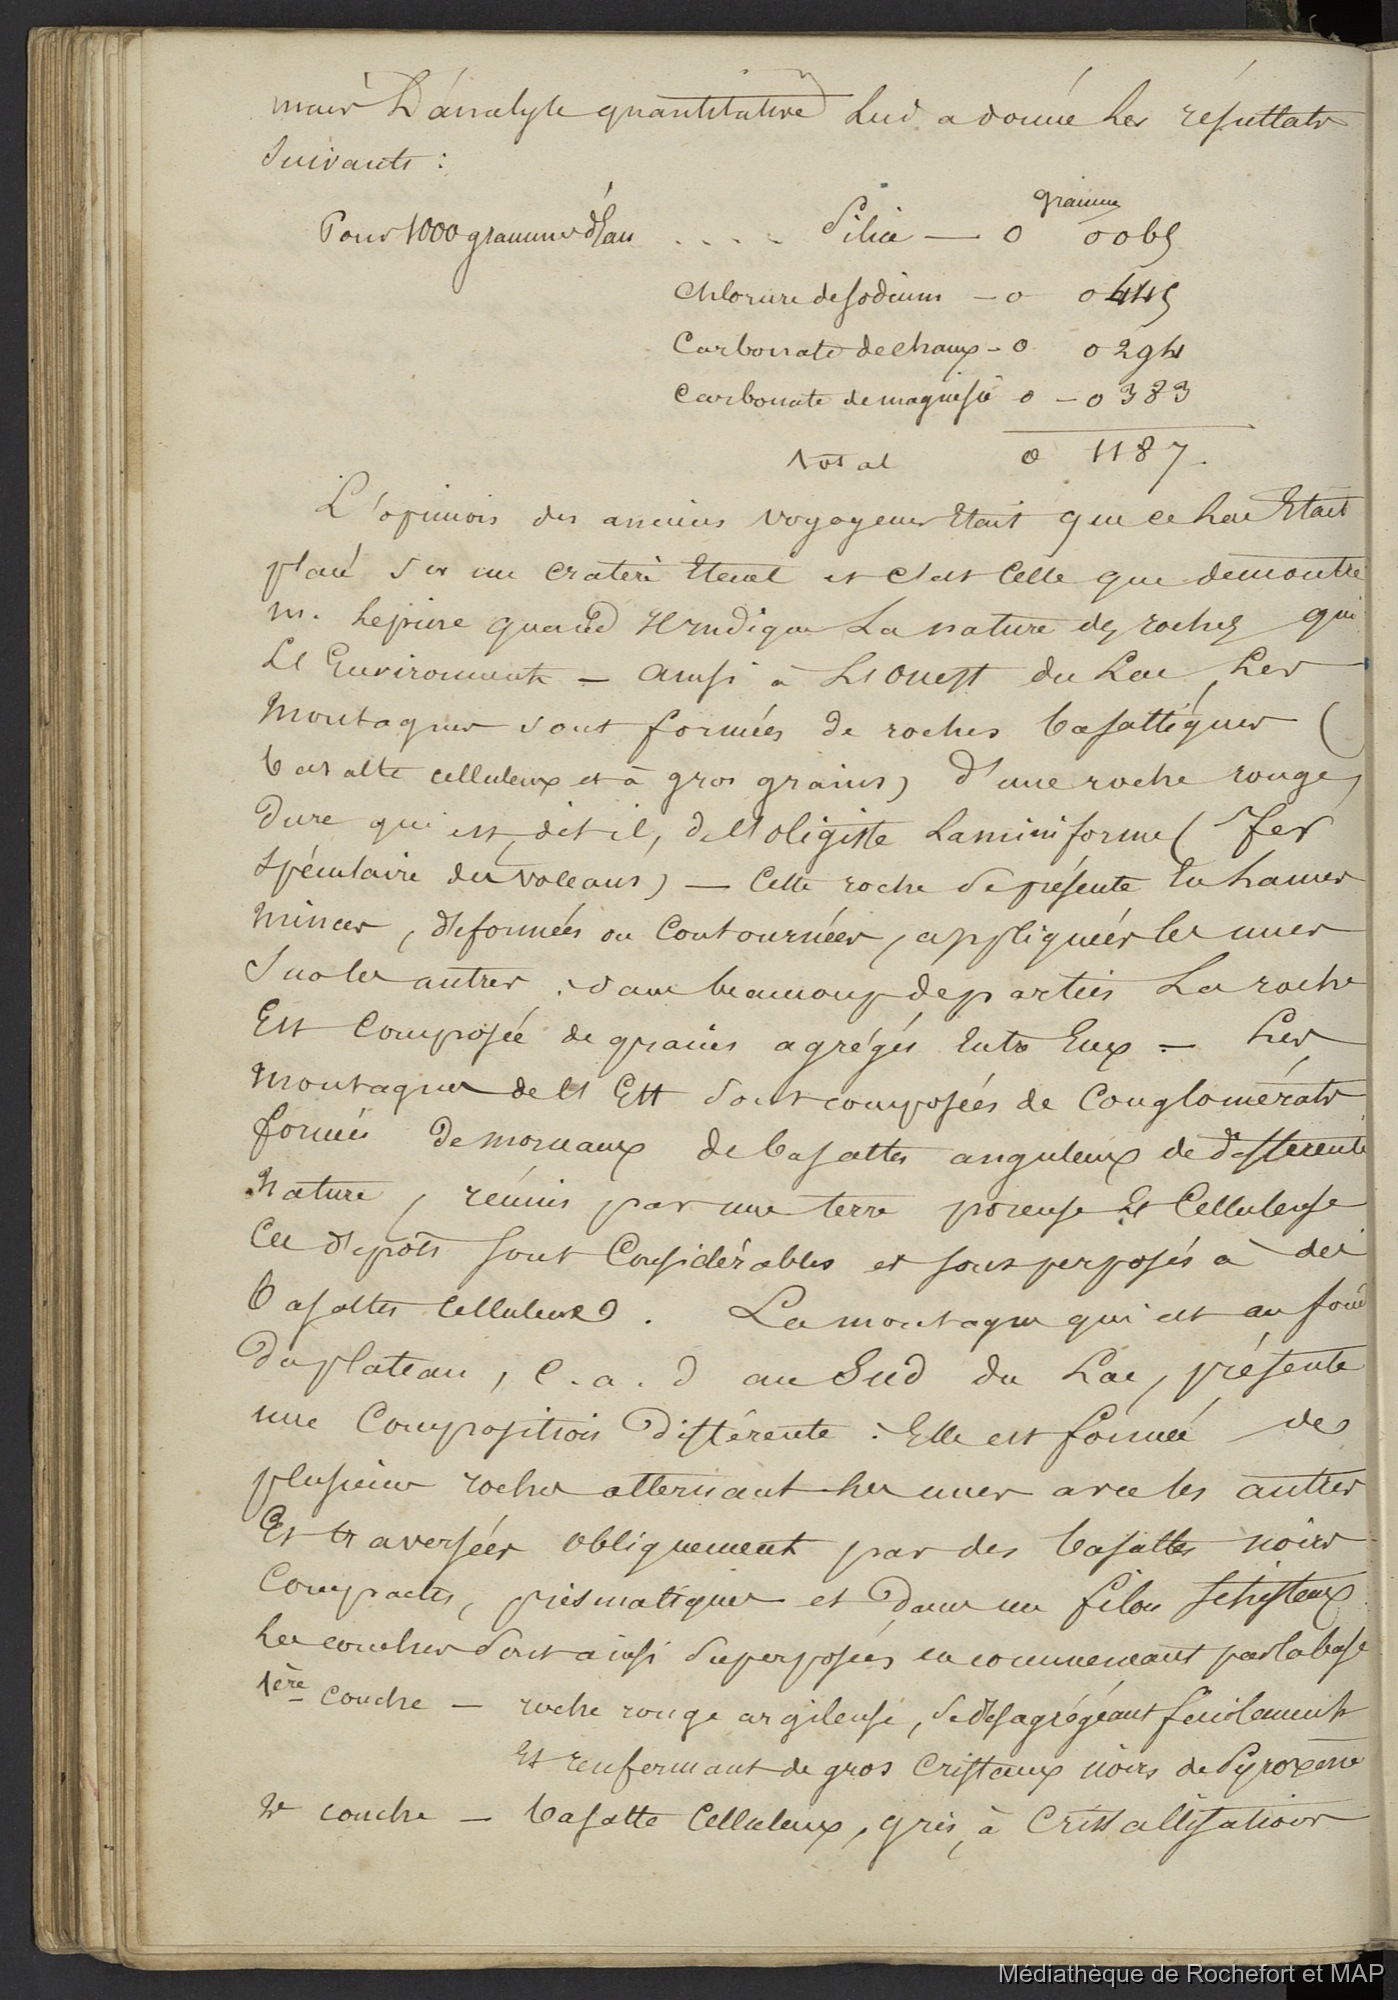 mais L'analyse quantitative lui a donné les résultats
suivants :
gramme
Pour 1000 grammes d'Eau . . . . Silice — 0 0065
Chlorure de sodium — 0 0445
Carbonate de chaux - 0 0294
Carbonate de magnésie 0 - 0383
Total 0 1187.
L'opinion des anciens voyageurs Etait que ce Lac Etait
placé sur un cratère Eteint et c'est Celle que demontre
M. Lepine quand Il indique La nature des roches qui
L'Environnent — ainsi à L'Ouest du Lac Les
Montagnes sont formées de roches basaltiques (
basalte celluleux et à gros grains) d'une roche rouge,
Dure qui est, dit-il, de l'oligiste Laminiforme (Fer
Spéculaire des volcans) — Cette roche se présente En Lames
Minces, déformées ou Contournées, appliquées les unes
Sur les autres ; dans beaucoup de parties La roche
Est Composée de grains agrégés Entre Eux — Les
Montagnes de l'Est sont composées de Conglomérats
formés De morceaux de basaltes anguleux de différente
Nature, réunis par une terre poreuse Et Celluleuse
Ces dépots sont Considérables et sont perposés à des
basaltes Celluleux. La montagne qui est au fond
Du plateau, C. a. d au Sud du Lac, présente
une Composition Différente : Elle est formée de
plusieurs roches alternant les unes avec les autres
Et traversées obliquement par des basaltes noirs
Compactes, prismatiques et Dans un filon Schisteux
Les couches sont ainsi superposées en commencant par la base
1ère couche — roche rouge argileuse, se désagrégeant facilement
Et renfermant de gros Cristaux noirs de Pyroxène
2e couche — basalte Celluleux, gris, à Cristallisations
Médiathèque de Rochefort et MAP